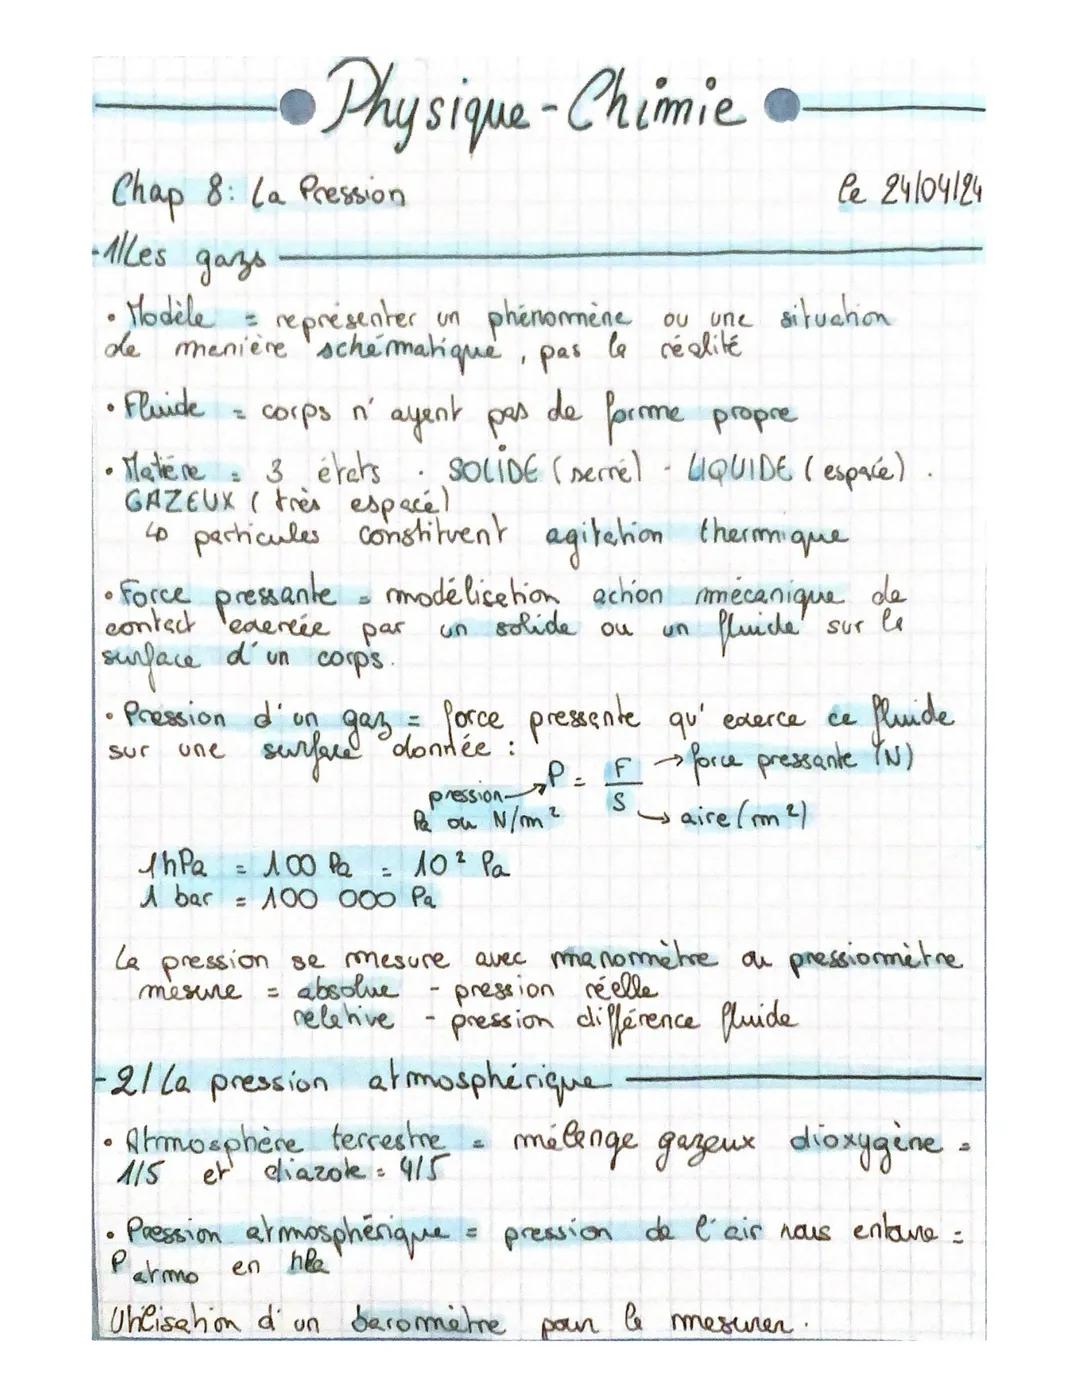 Physique-Chimie
Chap 8: La Pression
le 24/04/24
1/Les gazs
• Modèle = représenter un phénomène ou une situation
de menière schématique, pas la réalité
• Fluide = corps n'ayent pas de forme propre
• Matière = 3 états . SOLIDE (serré) - LIQUIDE (espacé) .
GAZEUX (très espacé)
↳ particules constituent agitation thermique
• Force pressante = modélisation action mécanique de
contact exercée par un solide ou un fluide sur la
surface d'un corps.
• Pression d'un gaz = force pressante qu'exerce ce fluide
sur une surface donnée :
P = F/S
→ force pressante (N)
pression →
Pa ou N/m²
→ aire (m²)
1hPa = 100 Pa = 10² Pa
1 bar = 100 000 Pa
La pression se mesure avec manomètre ou pressiomètre
mesure = absolue - pression réelle
relative - pression différence fluide
2/ La pression atmosphérique
• Atmosphère terrestre = mélange gazeux dioxygène =
1/5 et diazote = 4/5
• Pression atmosphérique = pression de l'air nous entoure =
P atmo en hPa
Utilisation d'un baromètre pour la mesurer.